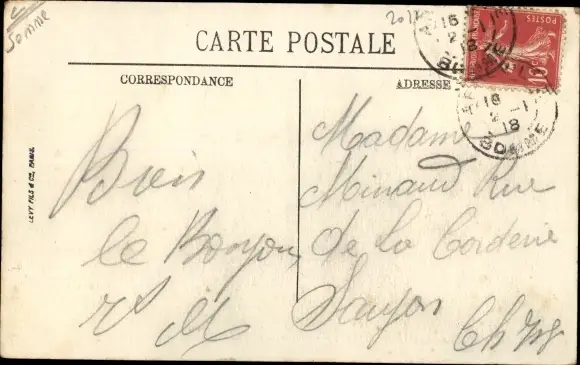 Somme
CARTE POSTALE
CORRESPONDANCE
ADRESSE
LEVY FILS & Cie, PARIS
POSTES
10
16
2 - 1
18
SOMME
16
2 - 1
18
SOMME
Bois
le Bonjour,
Madame
Minaud Rue
de la Corderie
Saujon